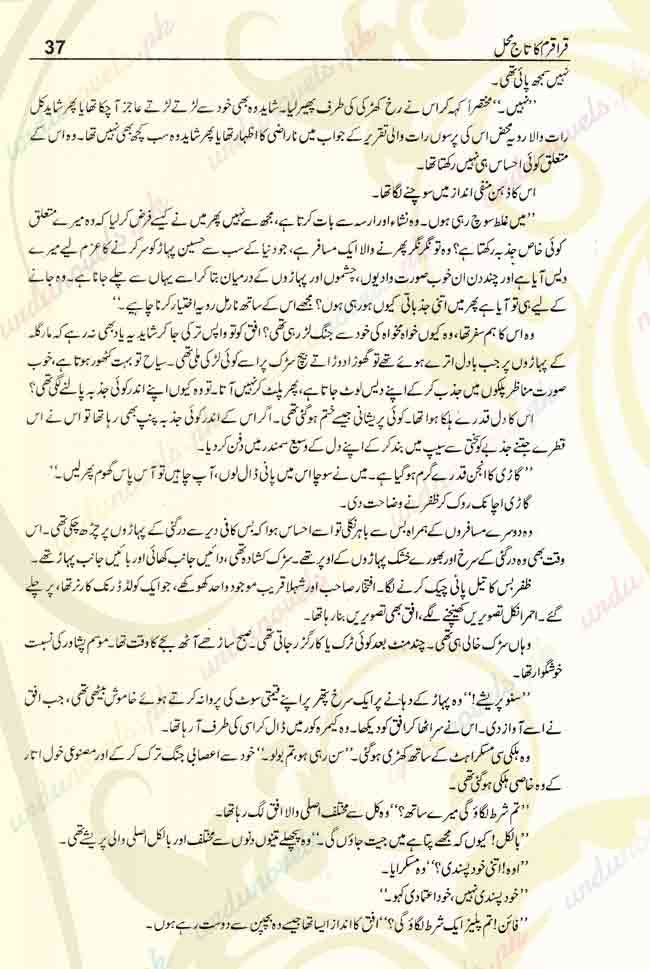 قراقرم کا تاج محل
37
نہیں سمجھ پائی تھی۔
”نہیں۔“ مختصراً کہہ کر اس نے رخ کھڑکی کی طرف پھیر لیا۔ شاید وہ بھی خود سے لڑتے لڑتے عاجز آ چکا تھا یا پھر شاید کل
رات والا رویہ محض اس کی پرسوں رات والی تقریر کے جواب میں ناراضی کا اظہار تھا یا پھر شاید وہ سب کچھ بھی نہیں تھا۔ وہ اس کے
متعلق کوئی احساس ہی نہیں رکھتا تھا۔
اس کا ذہن منفی انداز میں سوچنے لگا تھا۔
”میں غلط سوچ رہی ہوں۔ وہ نشاء اور ارسہ سے بات کرتا ہے، مجھ سے نہیں پھر میں نے کیسے فرض کر لیا کہ وہ میرے متعلق
کوئی خاص جذبہ رکھتا ہے؟ وہ تو نگر نگر پھرنے والا ایک مسافر ہے، جو دنیا کے سب سے حسین پہاڑ کو سر کرنے کا عزم لیے میرے
دیس آیا ہے اور چند دن ان خوب صورت وادیوں، چشموں اور پہاڑوں کے درمیان بتا کر اسے یہاں سے چلے جانا ہے۔ وہ جانے
کے لیے ہی تو آیا ہے پھر میں اتنی جذباتی کیوں ہو رہی ہوں؟ مجھے اس کے ساتھ نارمل رویہ اختیار کرنا چاہیے۔“
وہ اس کا ہم سفر تھا، وہ کیوں خواہ مخواہ کی خود سے جنگ لڑ رہی تھی؟ افق کو تو واپس ترکی جا کر شاید یہ یاد بھی نہ رہے کہ مارگلہ
کے پہاڑوں پر جب بادل اترے ہوئے تھے تو گھوڑا دوڑاتے بیچ سڑک پر اسے کوئی لڑکی ملی تھی۔ سیاح تو بہت کٹھور ہوتا ہے، خوب
صورت مناظر پلکوں میں جذب کر کے اپنے دیس لوٹ جاتا ہے، پھر پلٹ کر نہیں آتا۔ تو وہ کیوں اپنے اندر کوئی جذبہ پالنے لگی تھی؟
اس کا دل قدرے ہلکا ہوا تھا۔ کوئی پریشانی جیسے ختم ہو گئی تھی۔ اگر اس کے اندر کوئی جذبہ پنپ بھی رہا تھا تو اس نے اس
قطرے جتنے جذبے کو سختی سے سیپ میں بند کر کے اپنے دل کے وسیع سمندر میں دفن کر دیا۔
”گاڑی کا انجن قدرے گرم ہو گیا ہے۔ میں نے سوچا اس میں پانی ڈال لوں، آپ چاہیں تو آس پاس گھوم پھر لیں۔“
گاڑی اچانک روک کر ظفر نے وضاحت دی۔
وہ دوسرے مسافروں کے ہمراہ بس سے باہر نکلی تو اسے احساس ہوا کہ بس کافی دیر سے درگئی کے پہاڑوں پر چڑھ چکی تھی۔ اس
وقت بھی وہ درگئی کے سرخ اور بھورے خشک پہاڑوں کے اوپر تھے۔ سڑک کشادہ تھی، دائیں جانب کھائی اور بائیں جانب پہاڑ تھے۔
ظفر بس کا تیل پانی چیک کرنے لگا۔ افتخار صاحب اور شہلا قریب موجود واحد کھوکھے، جو ایک کولڈ ڈرنک کارنر تھا، پر چلے
گئے۔ احمر انکل تصویریں کھینچنے لگے، افق بھی تصویریں بنا رہا تھا۔
وہاں سڑک خالی ہی تھی۔ چند منٹ بعد کوئی ٹرک یا کار گزر جاتی تھی۔ صبح ساڑھے آٹھ بجے کا وقت تھا۔ موسم پشاور کی نسبت
خوشگوار تھا۔
”سنو پریشے!“ وہ پہاڑ کے دہانے پر ایک سرخ پتھر پر اپنے قیمتی سوٹ کی پروا نہ کرتے ہوئے خاموش بیٹھی تھی، جب افق
نے اسے آواز دی۔ اس نے سر اٹھا کر افق کو دیکھا۔ وہ کیمرہ کور میں ڈال کر اسی کی طرف آ رہا تھا۔
وہ ہلکی سی مسکراہٹ کے ساتھ کھڑی ہو گئی۔ ”سن رہی ہو، تم بولو۔“ خود سے اعصابی جنگ ترک کر کے اور مصنوعی خول اتار
کے وہ خاصی ہلکی ہو گئی تھی۔
”تم شرط لگاؤ گی میرے ساتھ؟“ وہ کل سے مختلف اصلی والا افق لگ رہا تھا۔
”بالکل! کیوں کہ مجھے پتا ہے میں جیت جاؤں گی۔“ وہ پچھلے تینوں دنوں سے مختلف اور بالکل اصلی والی پریشے تھی۔
”اوہ! اتنی خود پسندی؟“ وہ مسکرایا۔
”خود پسندی نہیں، خود اعتمادی کہو۔“
”فائن! تم پلیز ایک شرط لگاؤ گی؟“ افق کا انداز ایسا تھا جیسے وہ بچپن سے دوست رہے ہوں۔